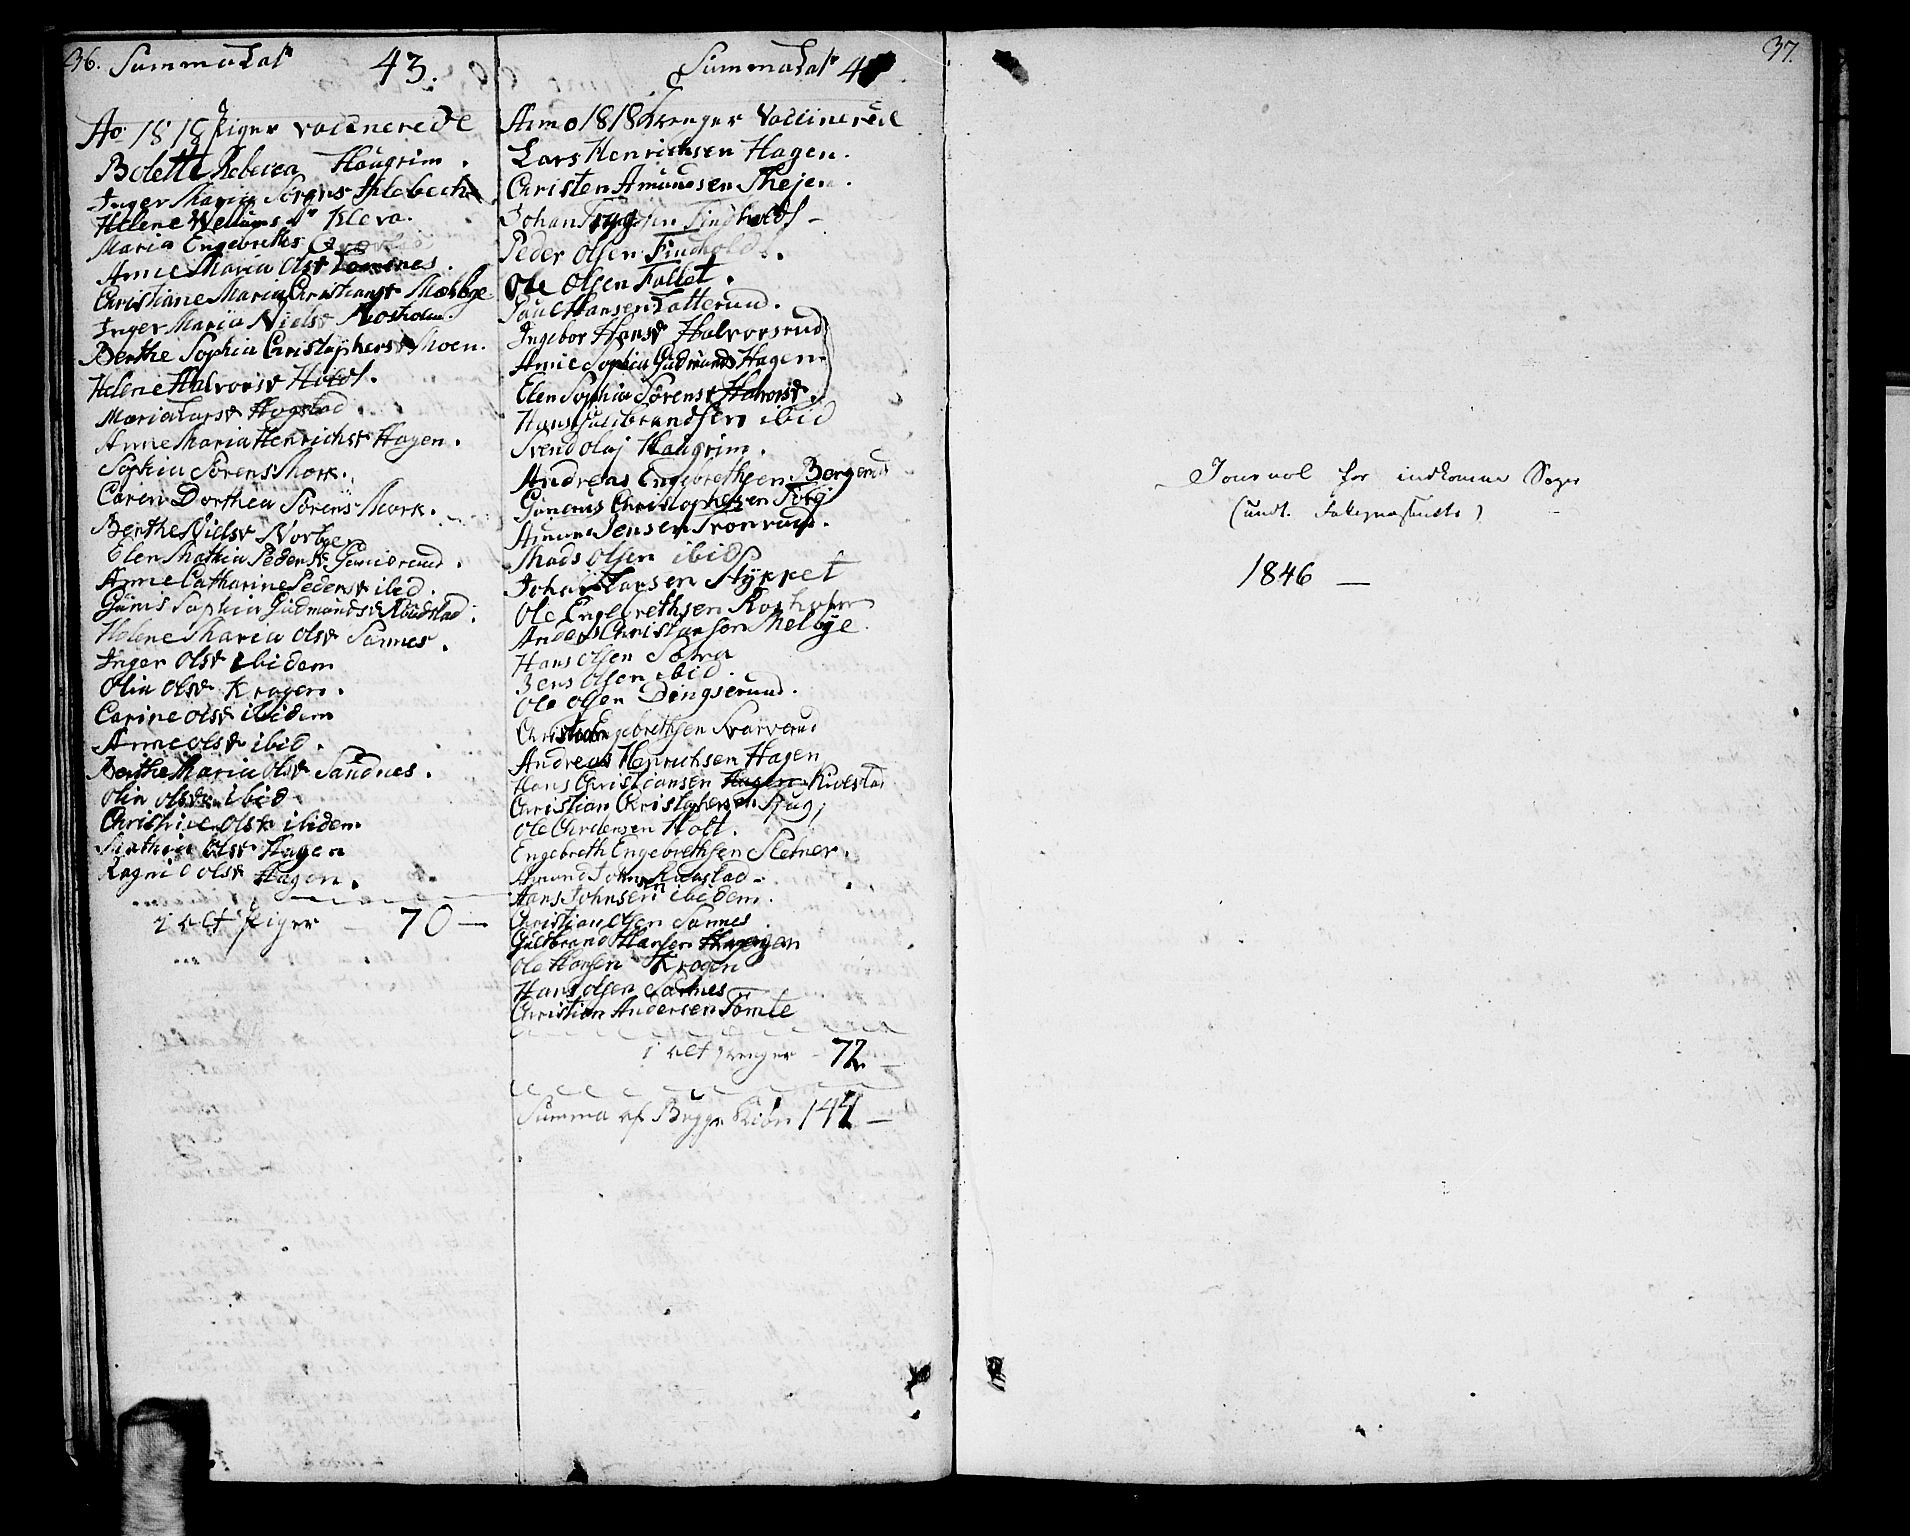 36. Summa Lat 43.
Ao 1818 Piger vaccinerede
Bolette Rebecca Haugrim.
Inger Maria Sørens
Helene Kleva.
Maria Engebreths
Anne Maria Olsdr
Christiane Maria Christiansdr Melbye
Inger Maria Nielsdr Rosholm.
Berthe Sophia Christophersdr Moen.
Helene Halvorsdr Holdt.
Maria Larsdr Hogstad.
Anne Maria Henrichsdr Hagen.
Sophia Sørens Mork.
Caren Dorthea Sørens Mork.
Berthe Nielsdr Norbye
Elen Mathia Pedersdr
Anne Catharine Pedersdr ibid.
Gunis Sophia Gudmundsdr Rudstad.
Helene Maria Olsdr Sannes.
Inger Olsdr ibidem
Olia Olsdr Kragen.
Carine Olsdr ibidem
Anne Olsdr ibid.
Berthe Maria Olsdr Sandnes.
Olia Olsdr ibid
Christine Olsdr ibidem
Mathia Olsdr Hagen
Ragnild Olsdr Hagen.
i alt Piger – 70 –
Summa Lat 4
Anno 1818 Drenger Vaccinerede
Lars Henrichsen Hagen.
Christen Amundsen
Johan Findholdt –
Peder Olsen Findholdt.
Ole Olsen Follet.
Paul Hansen Tatterud.
Ingebor Hansdr Halvorsrud
Anne Sophia Gudmunds Hagen
Elen Sophia Sørensdr Halvorsr.
Hans Gulbrandsen ibid
Svend Olaj Haugrim.
Andreas Engebrethsen Bergerud
Gunerius Christophersen
Amund Jensen Tronrud.
Mads Olsen ibid
Johan Larsen Stykket
Ole Engebrethsen Rosholm
Anders Christiansen Melbye.
Hans Olsen Sætra
Jens Olsen ibid.
Ole Olsen Dingserud.
Christian Engebrethsen Svarverud
Andreas Henrichsen Hagen
Hans Christiansen Hagen Rudstad
Christian Christophersen
Ole Andersen Holt.
Engebreth Engebrethsen Sletner.
Amund Johnsen Rudstad –
Hans Johnsen ibidem.
Christian Olsen Sannes
Gulbrand Hansen
Ole Hansen Kragen
Hans Olsen Sannes
Christian Andersen Tomte
i alt Drenger – 72 –
Summa af Begge Kiøn 144 –
37.
Journal for indkomne Sager
(undt. )
1846 —